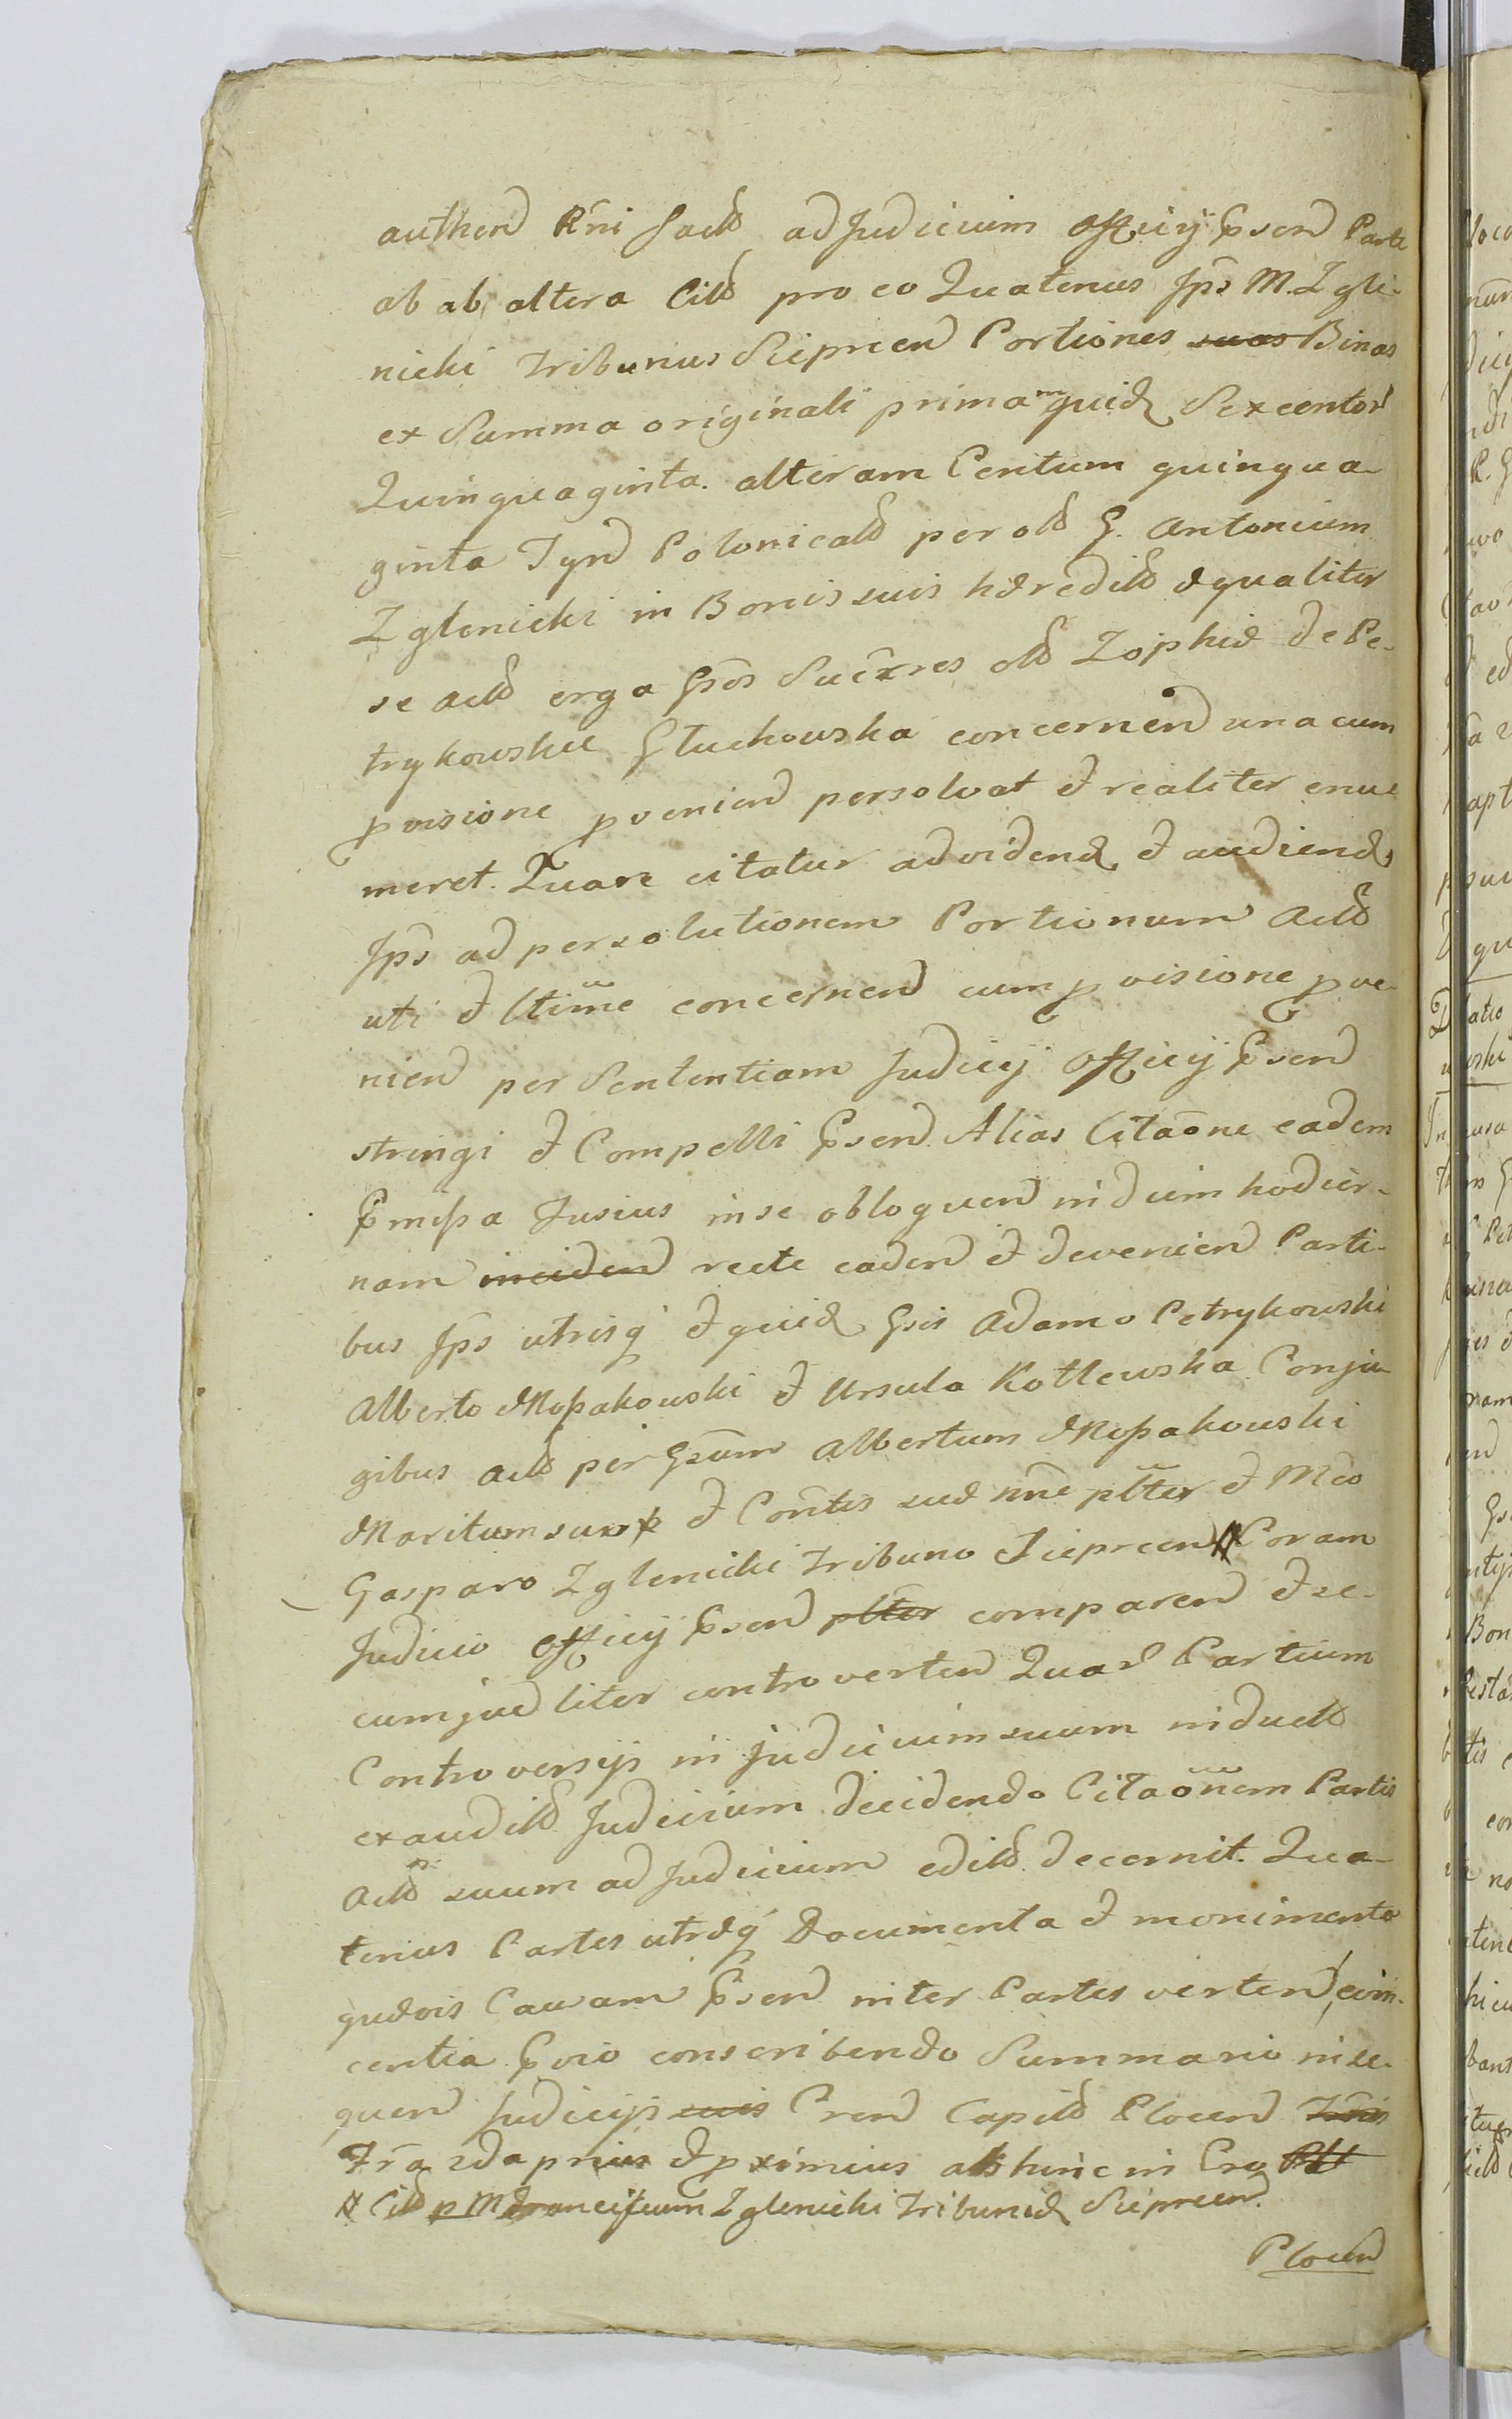 authen Rni fact ad Judicium Officÿ Psen Parte
ab ab altera Citt pro eo Quatenus Jps M. Zgle-
nicki Tribunus Sieprcen Portiones suas Binas
ex Summa originali primam quid Sexcentor
Quinquaginta. alteram Centum quinqua-
ginta Tyn Polonicalt per olt G. Antonium
Zglenicki in Bonis suis hæredit æqualiter
se actt erga Gsos Sucxres olt Zophiæ de Pe-
trykowskie Głuchowska concernen una cum
pvisione pvenien persolvat et realiter enu-
meret. Quare citatur ad viden et audiend
Jps ad persolutionem Portionum Actt
uti et ltime concernen cum pvisione pve-
nien per Sententiam Judicÿ Officÿ Psen
stringi et Compelli Psend. Alias Citaone eadem
Pmissa fusius in se obloquen in diem hodier-
nam inciden recte caden et devenien Parti-
bus Jps utrisq et quid Gsis Adamo Petrykowski
Alberto Mossakowski et Ursula Kotlewska Conju-
gibus actt per Gsum Albertum Mossakowski
Maritum suo et Contis suæ nne pltter et Mco
Gasparo Zglenicki Tribuno Sieprcen # Coram
Judicio Officÿ Psen plter comparen et se-
cum jud liter controverten Quar Partium
Controversÿs in judicium suum induct
exaudit Judicium decidendo Citaonem Partis
Act suum ad Judicium edit decernit. Qua-
tenus Partes utræq Documenta et monimenta
quævis Causam Psen inter Partes verten, evin-
centia Pvio conscribendo Summario in se-
quen Judicÿs suis Cren Capit Plocen
Fria 2da prius et pximius ab hinc in Cro
# Citt p M Franciscum Zglenicki Tribunid Sieprcen.
Plocen